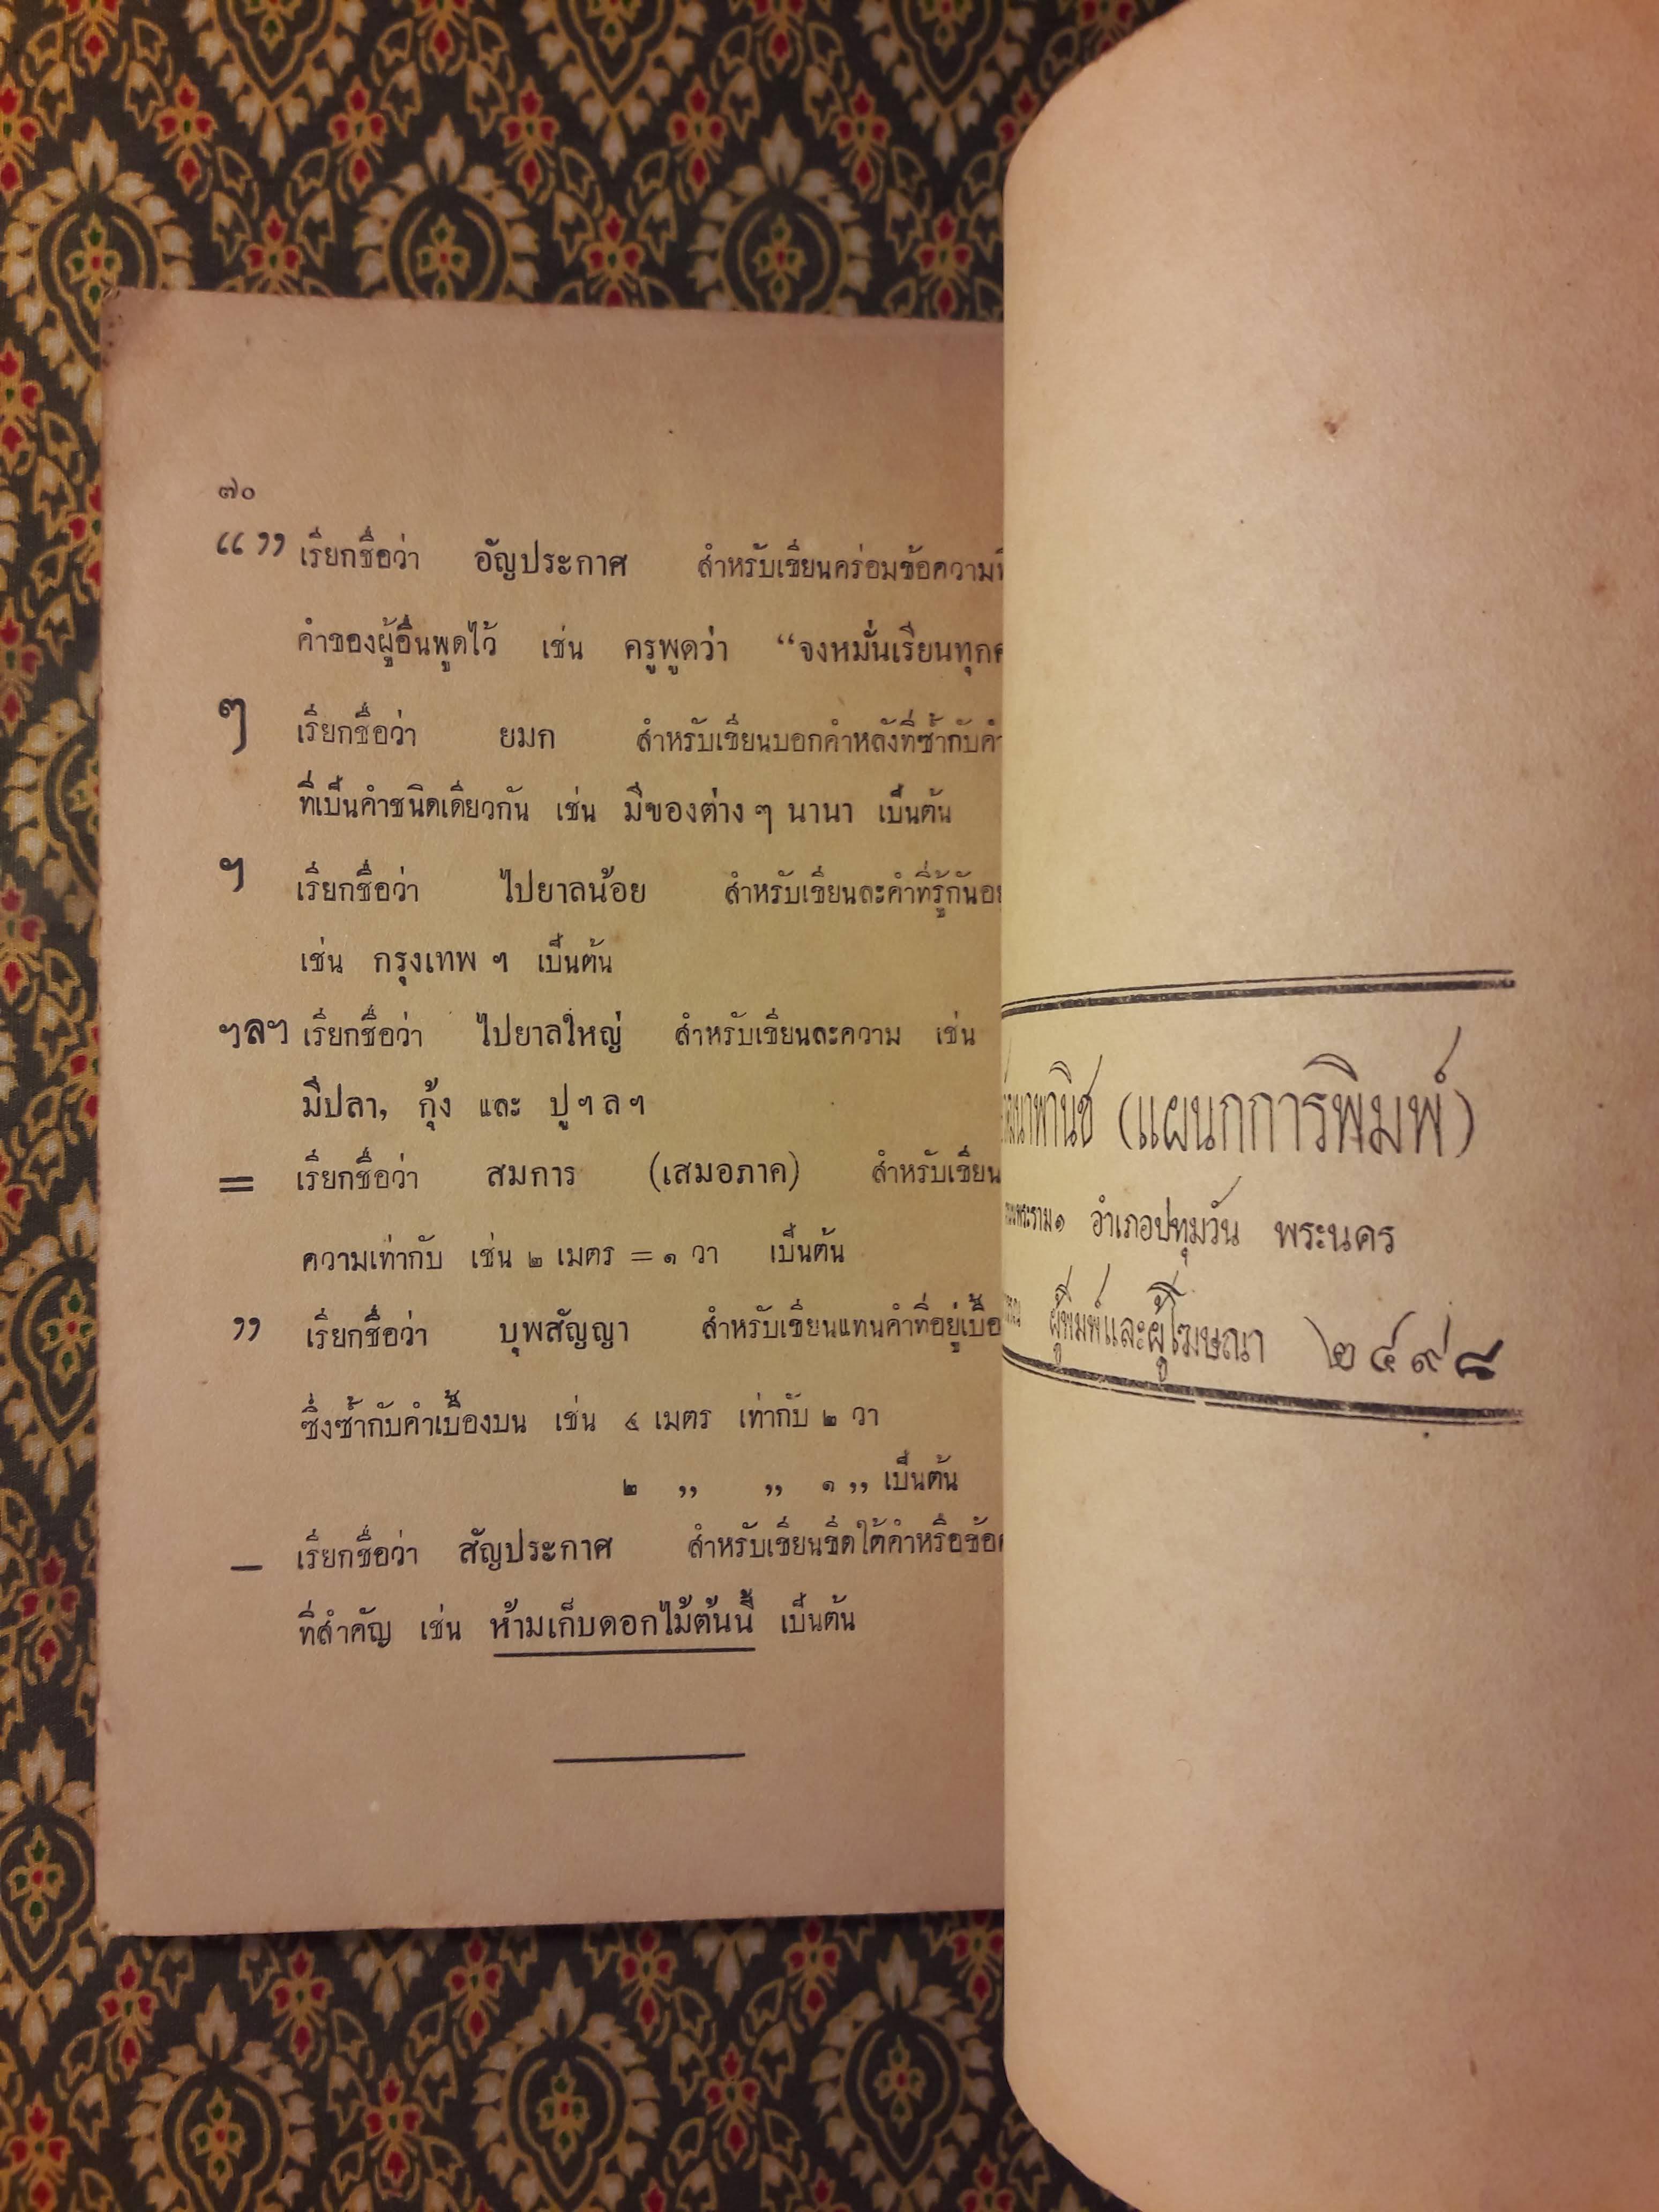 ๗๐
“ ” เรียกชื่อว่า อัญประกาศ สำหรับเขียนคร่อมข้อความ
คำของผู้อื่นพูดไว้ เช่น ครูพูดว่า “จงหมั่นเรียนทุก
ๆ เรียกชื่อว่า ยมก สำหรับเขียนบอกคำหลังที่ซ้ำกับ
ที่เป็นคำชนิดเดียวกัน เช่น มีของต่าง ๆ นานา เป็นต้น
ฯ เรียกชื่อว่า ไปยาลน้อย สำหรับเขียนละคำที่รู้กัน
เช่น กรุงเทพ ฯ เป็นต้น
ฯลฯ เรียกชื่อว่า ไปยาลใหญ่ สำหรับเขียนละความ เช่น
มีปลา, กุ้ง และ ปู ฯ ล ฯ
= เรียกชื่อว่า สมการ (เสมอภาค) สำหรับเขียน
ความเท่ากับ เช่น ๒ เมตร = ๑ วา เป็นต้น
” เรียกชื่อว่า บุพสัญญา สำหรับเขียนแทนคำที่อยู่
ซึ่งซ้ำกับคำเบื้องบน เช่น ๔ เมตร เท่ากับ ๒ วา
๒ ,, ,, ๑ ,, เป็นต้น
— เรียกชื่อว่า สัญประกาศ สำหรับเขียนขีดใต้คำหรือ
ที่สำคัญ เช่น ห้ามเก็บดอกไม้ต้นนี้ เป็นต้น
พานิช (แผนกการพิมพ์)
พระราม๑ อำเภอปทุมวัน พระนคร
ผู้พิมพ์และผู้โฆษณา ๒๔๙๘